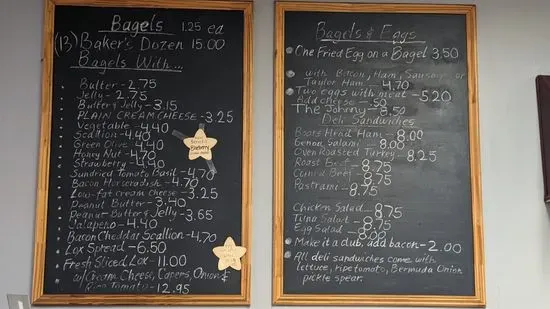 Bagels 1.25 ea
(13) Baker's Dozen 15.00
Bagels With...
Butter - 2.75
Jelly - 2.75
Butter & Jelly - 3.15
PLAIN CREAM CHEESE - 3.25
Vegetable - 4.40
Scallion - 4.40
Green Olive - 4.40
Honey Nut - 4.70
Strawberry - 4.40
Sundried Tomato Basil - 4.70
Bacon Horseradish - 4.70
Low-fat Cream Cheese - 3.25
Peanut Butter - 3.40
Peanut Butter & Jelly - 3.65
Jalapeno - 4.40
Bacon Cheddar Scallion - 4.70
Lox Spread - 6.50
Fresh Sliced Lox - 11.00
w/Cream Cheese, Capers, Onion &
Ripe Tomato - 12.95
Bagels & Eggs
One Fried Egg on a Bagel 3.50
with Bacon, Ham, Sausage or
Taylor Ham - 4.70
Two eggs with meat - 5.20
Add cheese - .50
The Johnny - 8.50
Deli Sandwiches
Boars Head Ham - 8.00
Genoa Salami - 8.00
Oven Roasted Turkey - 8.25
Roast Beef - 8.75
Corned Beef - 8.75
Pastrami - 8.75
Chicken Salad - 8.75
Tuna Salad - 8.75
Egg Salad - 8.00
Make it a club, add bacon - 2.00
All deli sandwiches come with
lettuce, ripe tomato, Bermuda Onion
pickle spear.